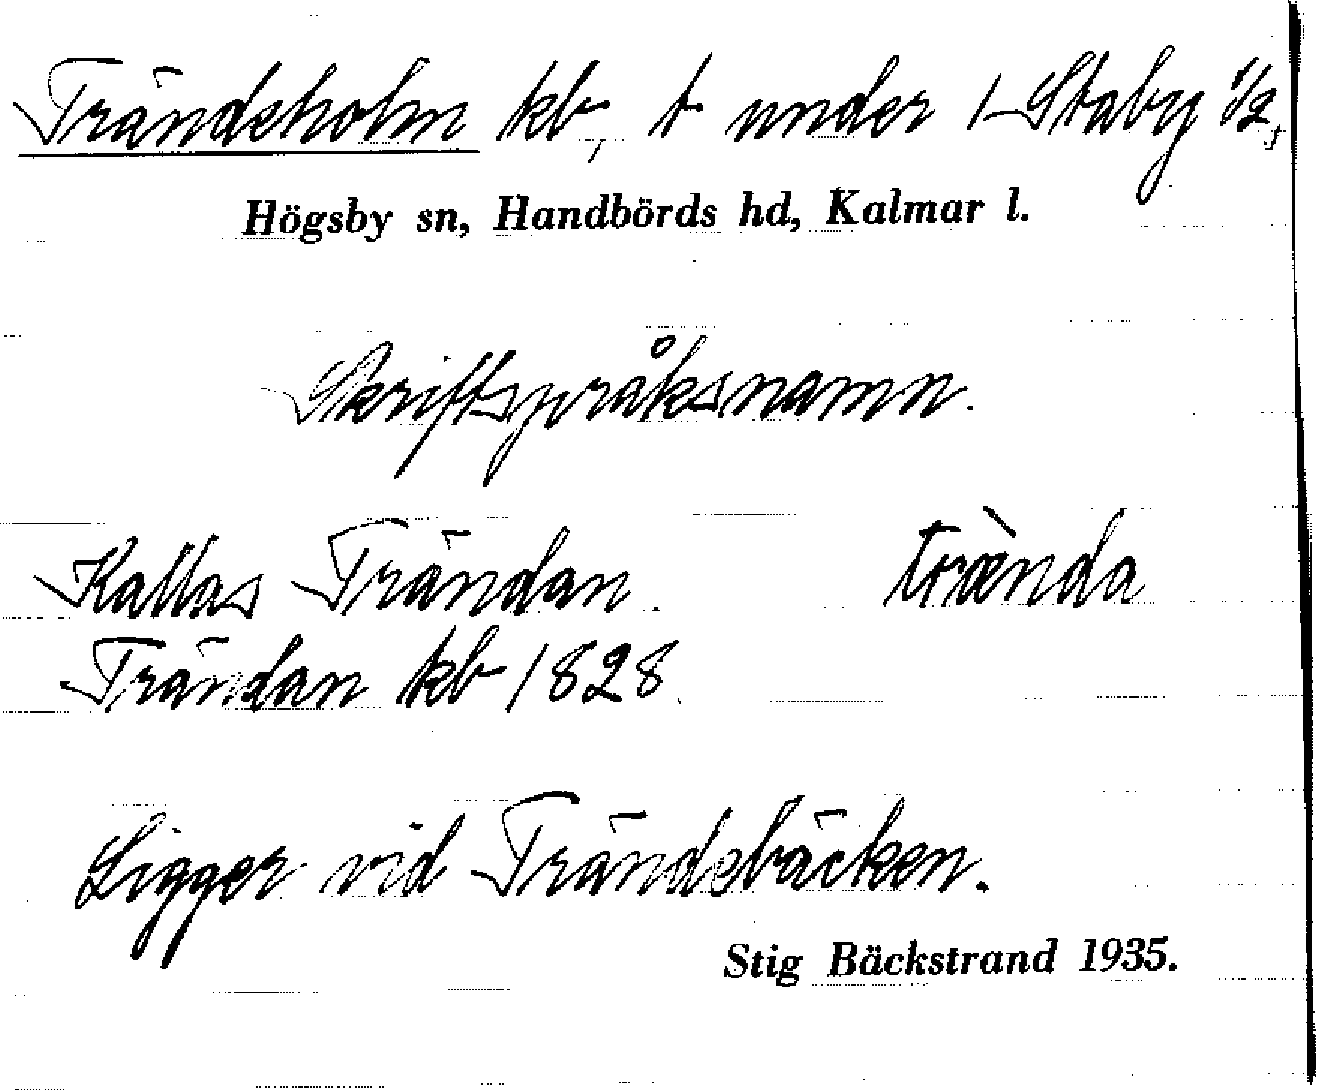 Trändeholm kb, t under 1 Staby 1/2,
Högsby sn, Handbörds hd, Kalmar l.
Skriftspråksnamn.
Kallas Trändan. trændà
Trändan kb 1828.
Ligger vid Trändebäcken.
Stig Bäckstrand 1935.